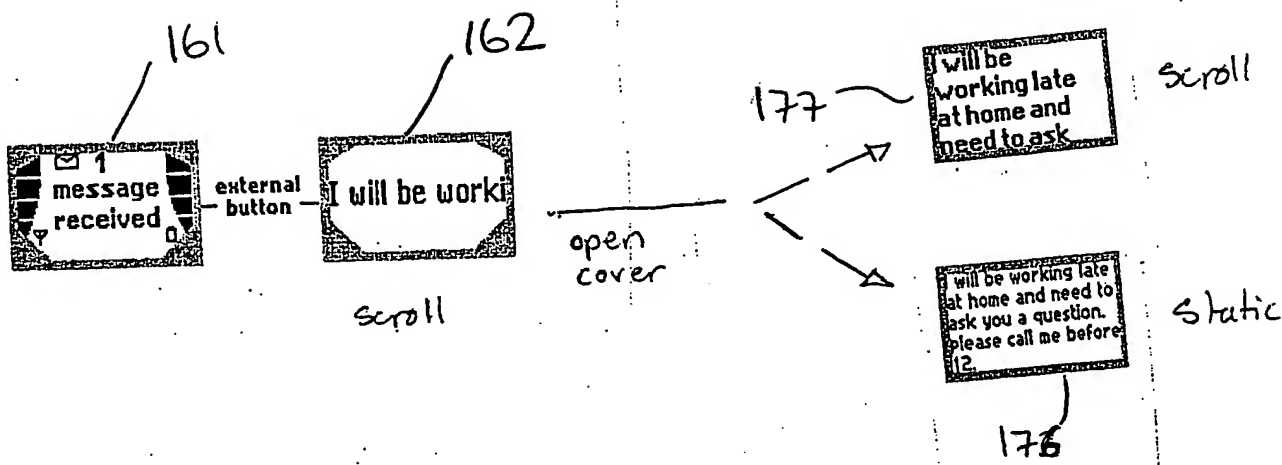 161
162
1
message
received
external
button
I will be worki
scroll
open
cover
177
I will be
working late
at home and
need to ask
scroll
I will be working late
at home and need to
ask you a question.
please call me before
12.
static
176